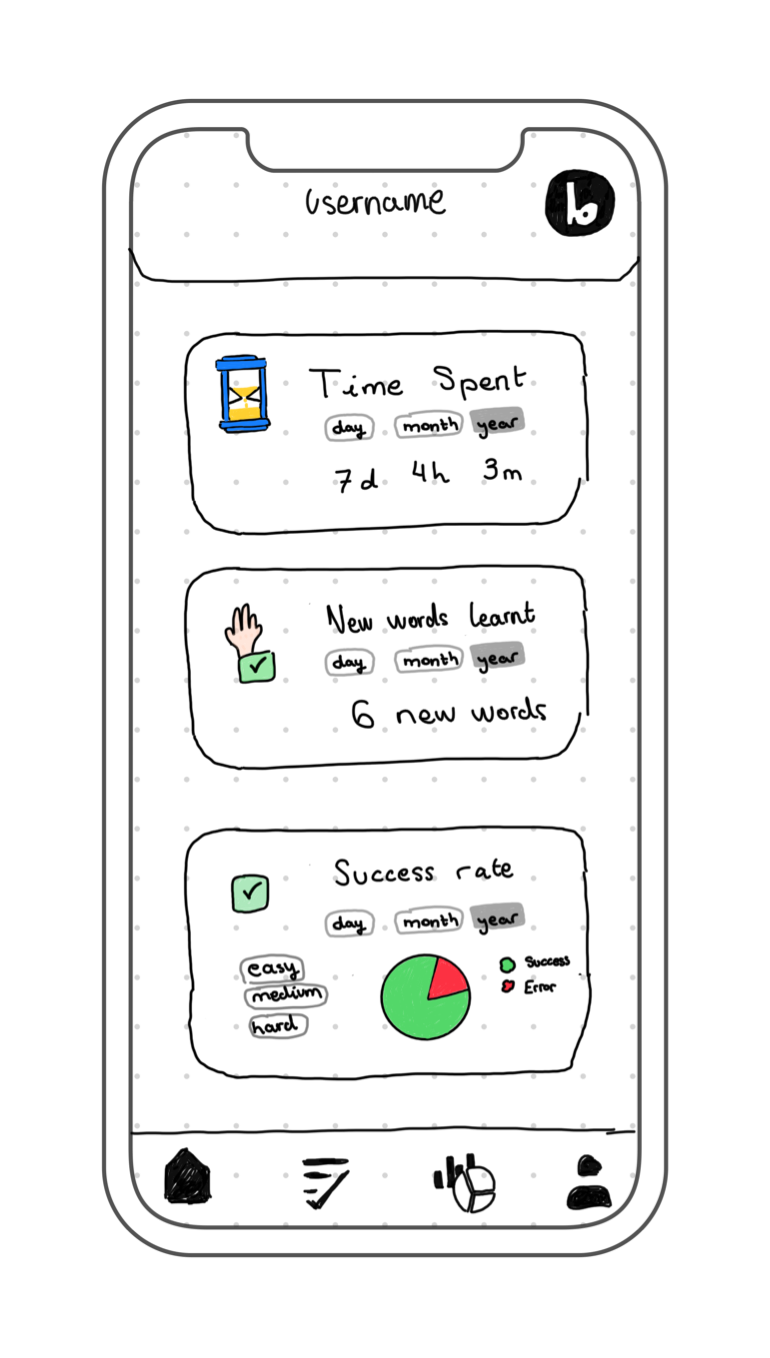 Username
b
Time Spent
day month year
7d 4h 3m
New words learnt
day month year
6 new words
Success rate
day month year
easy
medium
hard
Success
Error